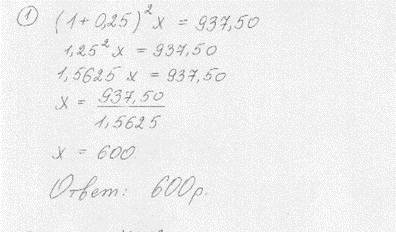 ① (1+0,25)²x = 937,50
1,25²x = 937,50
1,5625 x = 937,50
x = 937,50 / 1,5625
x = 600
Ответ: 600р.